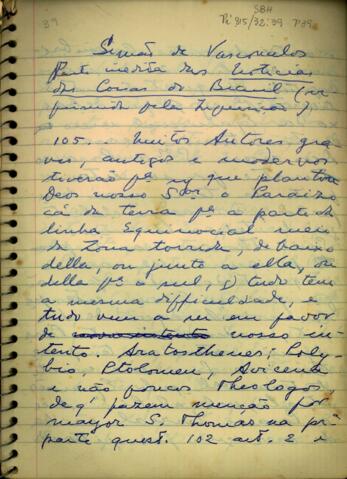 39
SBH
Pi 315/32:39 P39
Simão de Vasconcelos
Parte inedita das Noticias
das Cousas do Brasil (su
primida pela Inquisição).
105. Muitos Autores gra
ves, antigos e modernos
tiverão pª sy que plantara
Deos nosso Sõr o Paraizo
cá da terra pª a parte da
linha Equinocial meu
da Zona torrida, de baixo
della, ou junto a ella, ou
della pª o sul, q tudo tem
a mesma difficuldade, e
tudo vem a ser em favor
de nosso in
tento. Aratosthenes; Poly
bio, Ptolomeu, Avicena
e não poucos Theologos,
de q' fazem menção por
mayor S. Thomas na pr
parte quest. 102 art. 2 e